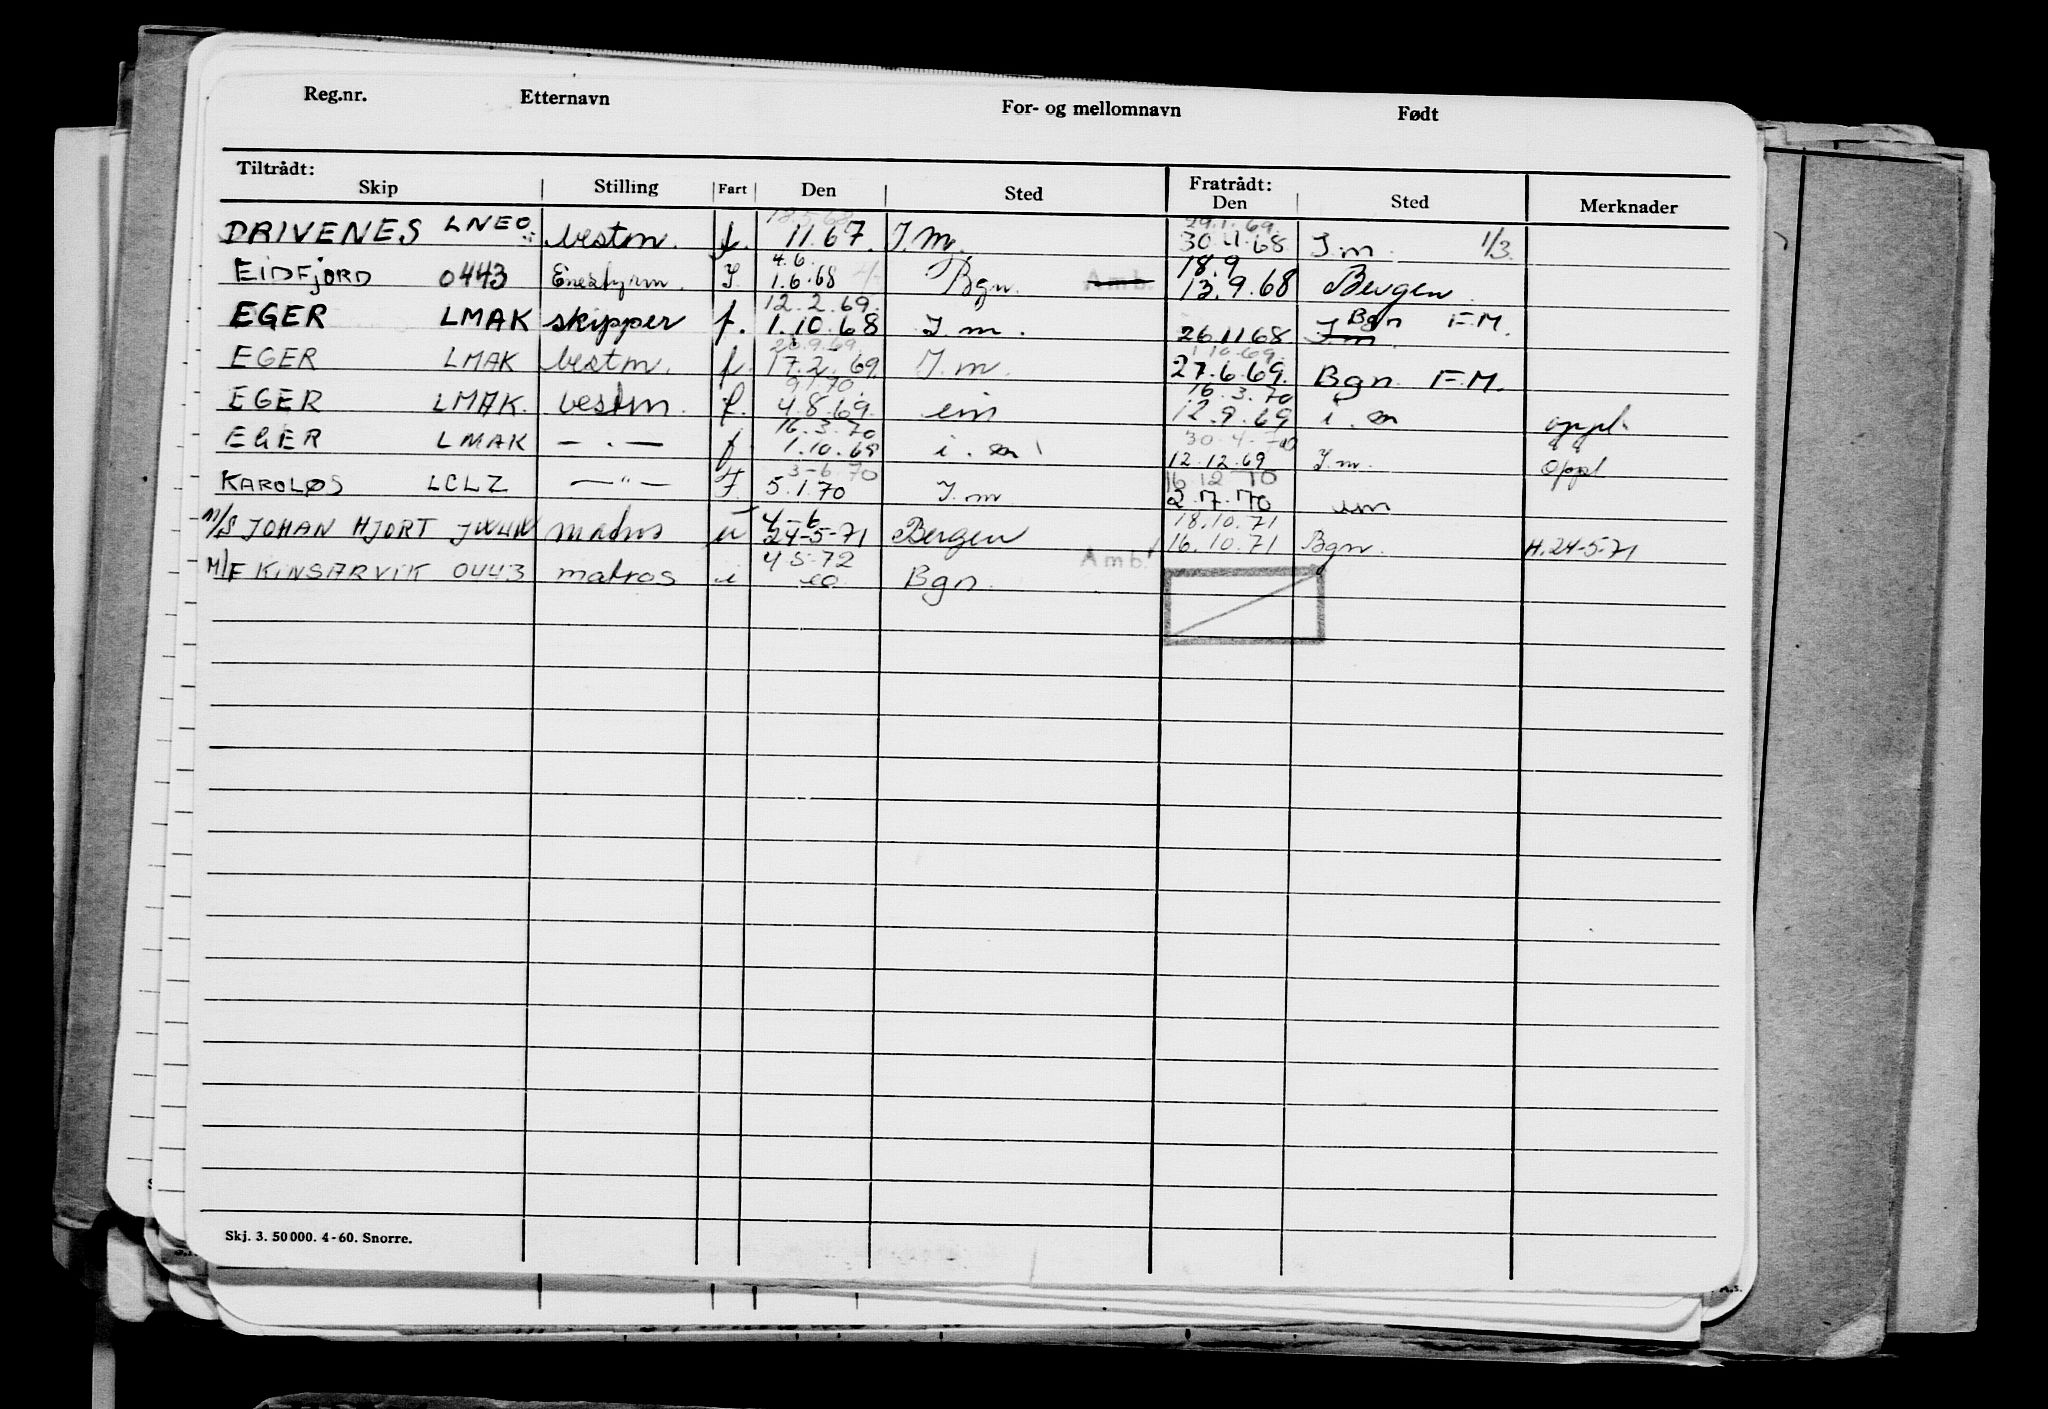 Reg.nr. Etternavn For- og mellomnavn Født
Tiltrådt: Fratrådt:
Skip Stilling Fart Den Sted Den Sted Merknader
18.5.68 29.1.69.
DRIVENES LNEO bestm. f. 11.67. I.m. 30.11.68 I.m. 1/3
4.6. 18.9
EIDFJORD 0443 Enestyrm. I. 1.6.68 Bgn. Amb. 13.9.68 Bergen
12.2.69. Bgn F.M.
EGER LMAK skipper f. 1.10.68 I m. 26.11.68 I m.
26.9.69. 1.10.69.
EGER LMAK bestm. f. 17.2.69. I.m. 27.6.69. Bgn. F.M.
9.1.70. 16.3.70
EGER LMAK. bestm. f. 4.8.69. em 12.9.69 i.m oppl.
16.3.70 30.4.70
EGER LMAK — . — f. 1.10.69 i.m 12.12.69 I.m. Oppl
3-6.70 16.12.70
KAROLØS LCLZ — " — F. 5.1.70 I.m 2.7.70 em
4-6- 18.10.71
M/S JOHAN HJORT matros u 24-5-71 Bergen 16.10.71 Bgn. H.24-5-71
4 5-72 Amb.
M/F KINSARVIK 0443 matros i Bgn.
Skj. 3. 50000. 4-60. Snorre.